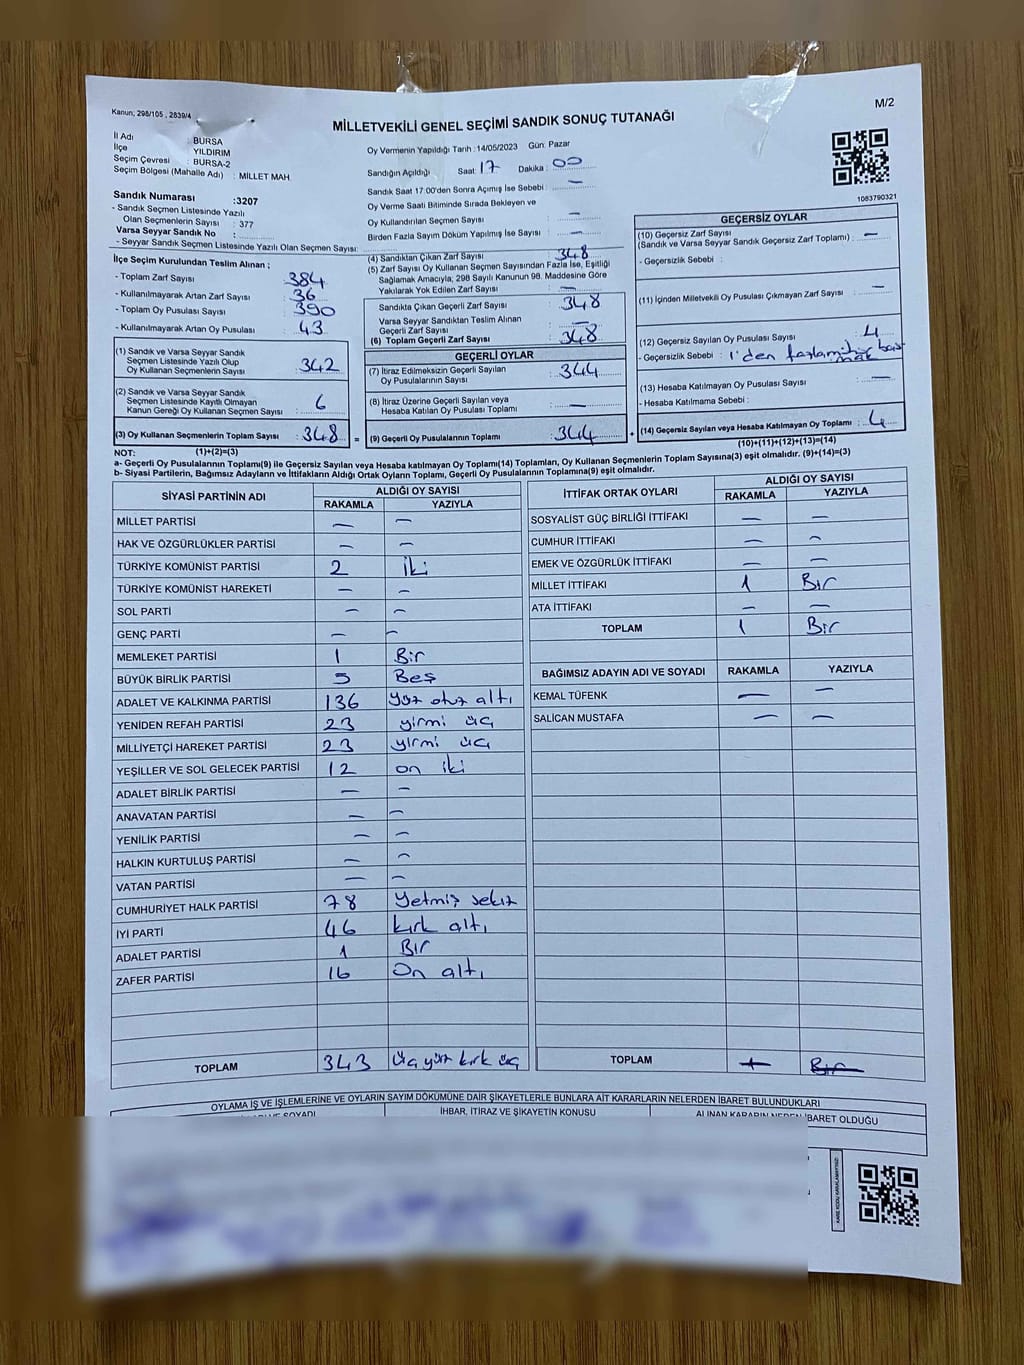 Kanun; 298/105 , 2839/4
M/2
MİLLETVEKİLİ GENEL SEÇİMİ SANDIK SONUÇ TUTANAĞI
İl Adı : BURSA
İlçe : YILDIRIM
Seçim Çevresi : BURSA-2
Seçim Bölgesi (Mahalle Adı) : MİLLET MAH.
Sandık Numarası :3207
- Sandık Seçmen Listesinde Yazılı
Olan Seçmenlerin Sayısı : 377
Varsa Seyyar Sandık No :
- Seyyar Sandık Seçmen Listesinde Yazılı Olan Seçmen Sayısı:
Oy Vermenin Yapıldığı Tarih :14/05/2023 Gün: Pazar
Sandığın Açıldığı Saat: 17 Dakika : 00
Sandık Saat 17:00'den Sonra Açımış İse Sebebi : —
Oy Verme Saati Bitiminde Sırada Bekleyen ve
Oy Kullandırılan Seçmen Sayısı : —
Birden Fazla Sayım Döküm Yapılmış İse Sayısı : —
1083790321
İlçe Seçim Kurulundan Teslim Alınan ;
- Toplam Zarf Sayısı : 384
- Kullanılmayarak Artan Zarf Sayısı : 36
- Toplam Oy Pusulası Sayısı : 390
- Kullanılmayarak Artan Oy Pusulası : 43
(1) Sandık ve Varsa Seyyar Sandık
Seçmen Listesinde Yazılı Olup
Oy Kullanan Seçmenlerin Sayısı : 342
(2) Sandık ve Varsa Seyyar Sandık
Seçmen Listesinde Kayıtlı Olmayan
Kanun Gereği Oy Kullanan Seçmen Sayısı : 6
(3) Oy Kullanan Seçmenlerin Toplam Sayısı : 348
(4) Sandıktan Çıkan Zarf Sayısı : 348
(5) Zarf Sayısı Oy Kullanan Seçmen Sayısından Fazla İse, Eşitliği
Sağlamak Amacıyla; 298 Sayılı Kanunun 98. Maddesine Göre
Yakılarak Yok Edilen Zarf Sayısı : —
Sandıkta Çıkan Geçerli Zarf Sayısı : 348
Varsa Seyyar Sandıktan Teslim Alınan
Geçerli Zarf Sayısı : —
(6) Toplam Geçerli Zarf Sayısı : 348
GEÇERLİ OYLAR
(7) İtiraz Edilmeksizin Geçerli Sayılan
Oy Pusulalarının Sayısı : 344
(8) İtiraz Üzerine Geçerli Sayılan veya
Hesaba Katılan Oy Pusulası Toplamı : —
= (9) Geçerli Oy Pusulalarının Toplamı : 344 +
GEÇERSİZ OYLAR
(10) Geçersiz Zarf Sayısı
(Sandık ve Varsa Seyyar Sandık Geçersiz Zarf Toplamı) : —
- Geçersizlik Sebebi :
(11) İçinden Milletvekili Oy Pusulası Çıkmayan Zarf Sayısı : —
(12) Geçersiz Sayılan Oy Pusulası Sayısı : 4
- Geçersizlik Sebebi : 1'den
(13) Hesaba Katılmayan Oy Pusulası Sayısı : —
- Hesaba Katılmama Sebebi :
(14) Geçersiz Sayılan veya Hesaba Katılmayan Oy Toplamı : 4
NOT: (1)+(2)=(3)
(10)+(11)+(12)+(13)=(14)
a- Geçerli Oy Pusulasının Toplamı(9) ile Geçersiz Sayılan veya Hesaba katılmayan Oy Toplamı(14) Toplamları, Oy Kullanan Seçmenlerin Toplam Sayısına(3) eşit olmalıdır. (9)+(14)=(3)
b- Siyasi Partilerin, Bağımsız Adayların ve İttifakların Aldığı Ortak Oyların Toplamı, Geçerli Oy Pusulalarının Toplamına(9) eşit olmalıdır.
SİYASİ PARTİNİN ADI ALDIĞI OY SAYISI
RAKAMLA YAZIYLA
MİLLET PARTİSİ — —
HAK VE ÖZGÜRLÜKLER PARTİSİ — —
TÜRKİYE KOMÜNİST PARTİSİ 2 İki
TÜRKİYE KOMÜNİST HAREKETİ — —
SOL PARTİ — —
GENÇ PARTİ — —
MEMLEKET PARTİSİ 1 Bir
BÜYÜK BİRLİK PARTİSİ 5 Beş
ADALET VE KALKINMA PARTİSİ 136 Yüz otuz altı
YENİDEN REFAH PARTİSİ 23 yirmi üç
MİLLİYETÇİ HAREKET PARTİSİ 23 yirmi üç
YEŞİLLER VE SOL GELECEK PARTİSİ 12 on iki
ADALET BİRLİK PARTİSİ — —
ANAVATAN PARTİSİ — —
YENİLİK PARTİSİ — —
HALKIN KURTULUŞ PARTİSİ — —
VATAN PARTİSİ — —
CUMHURİYET HALK PARTİSİ 78 Yetmiş sekiz
İYİ PARTİ 46 kırk altı
ADALET PARTİSİ 1 Bir
ZAFER PARTİSİ 16 On altı
TOPLAM 343 üç yüz kırk üç
İTTİFAK ORTAK OYLARI ALDIĞI OY SAYISI
RAKAMLA YAZIYLA
SOSYALİST GÜÇ BİRLİĞİ İTTİFAKI — —
CUMHUR İTTİFAKI — —
EMEK VE ÖZGÜRLÜK İTTİFAKI — —
MİLLET İTTİFAKI 1 Bir
ATA İTTİFAKI — —
TOPLAM 1 Bir
BAĞIMSIZ ADAYIN ADI VE SOYADI RAKAMLA YAZIYLA
KEMAL TÜFENK — —
SALİCAN MUSTAFA — —
TOPLAM 1 Bir
OYLAMA İŞ VE İŞLEMLERİNE VE OYLARIN SAYIM DÖKÜMÜNE DAİR ŞİKAYETLERLE BUNLARA AİT KARARLARIN NELERDEN İBARET BULUNDUKLARI
SOYADI İHBAR, İTİRAZ VE ŞİKAYETİN KONUSU ALINAN KARARIN NEDEN İBARET OLDUĞU